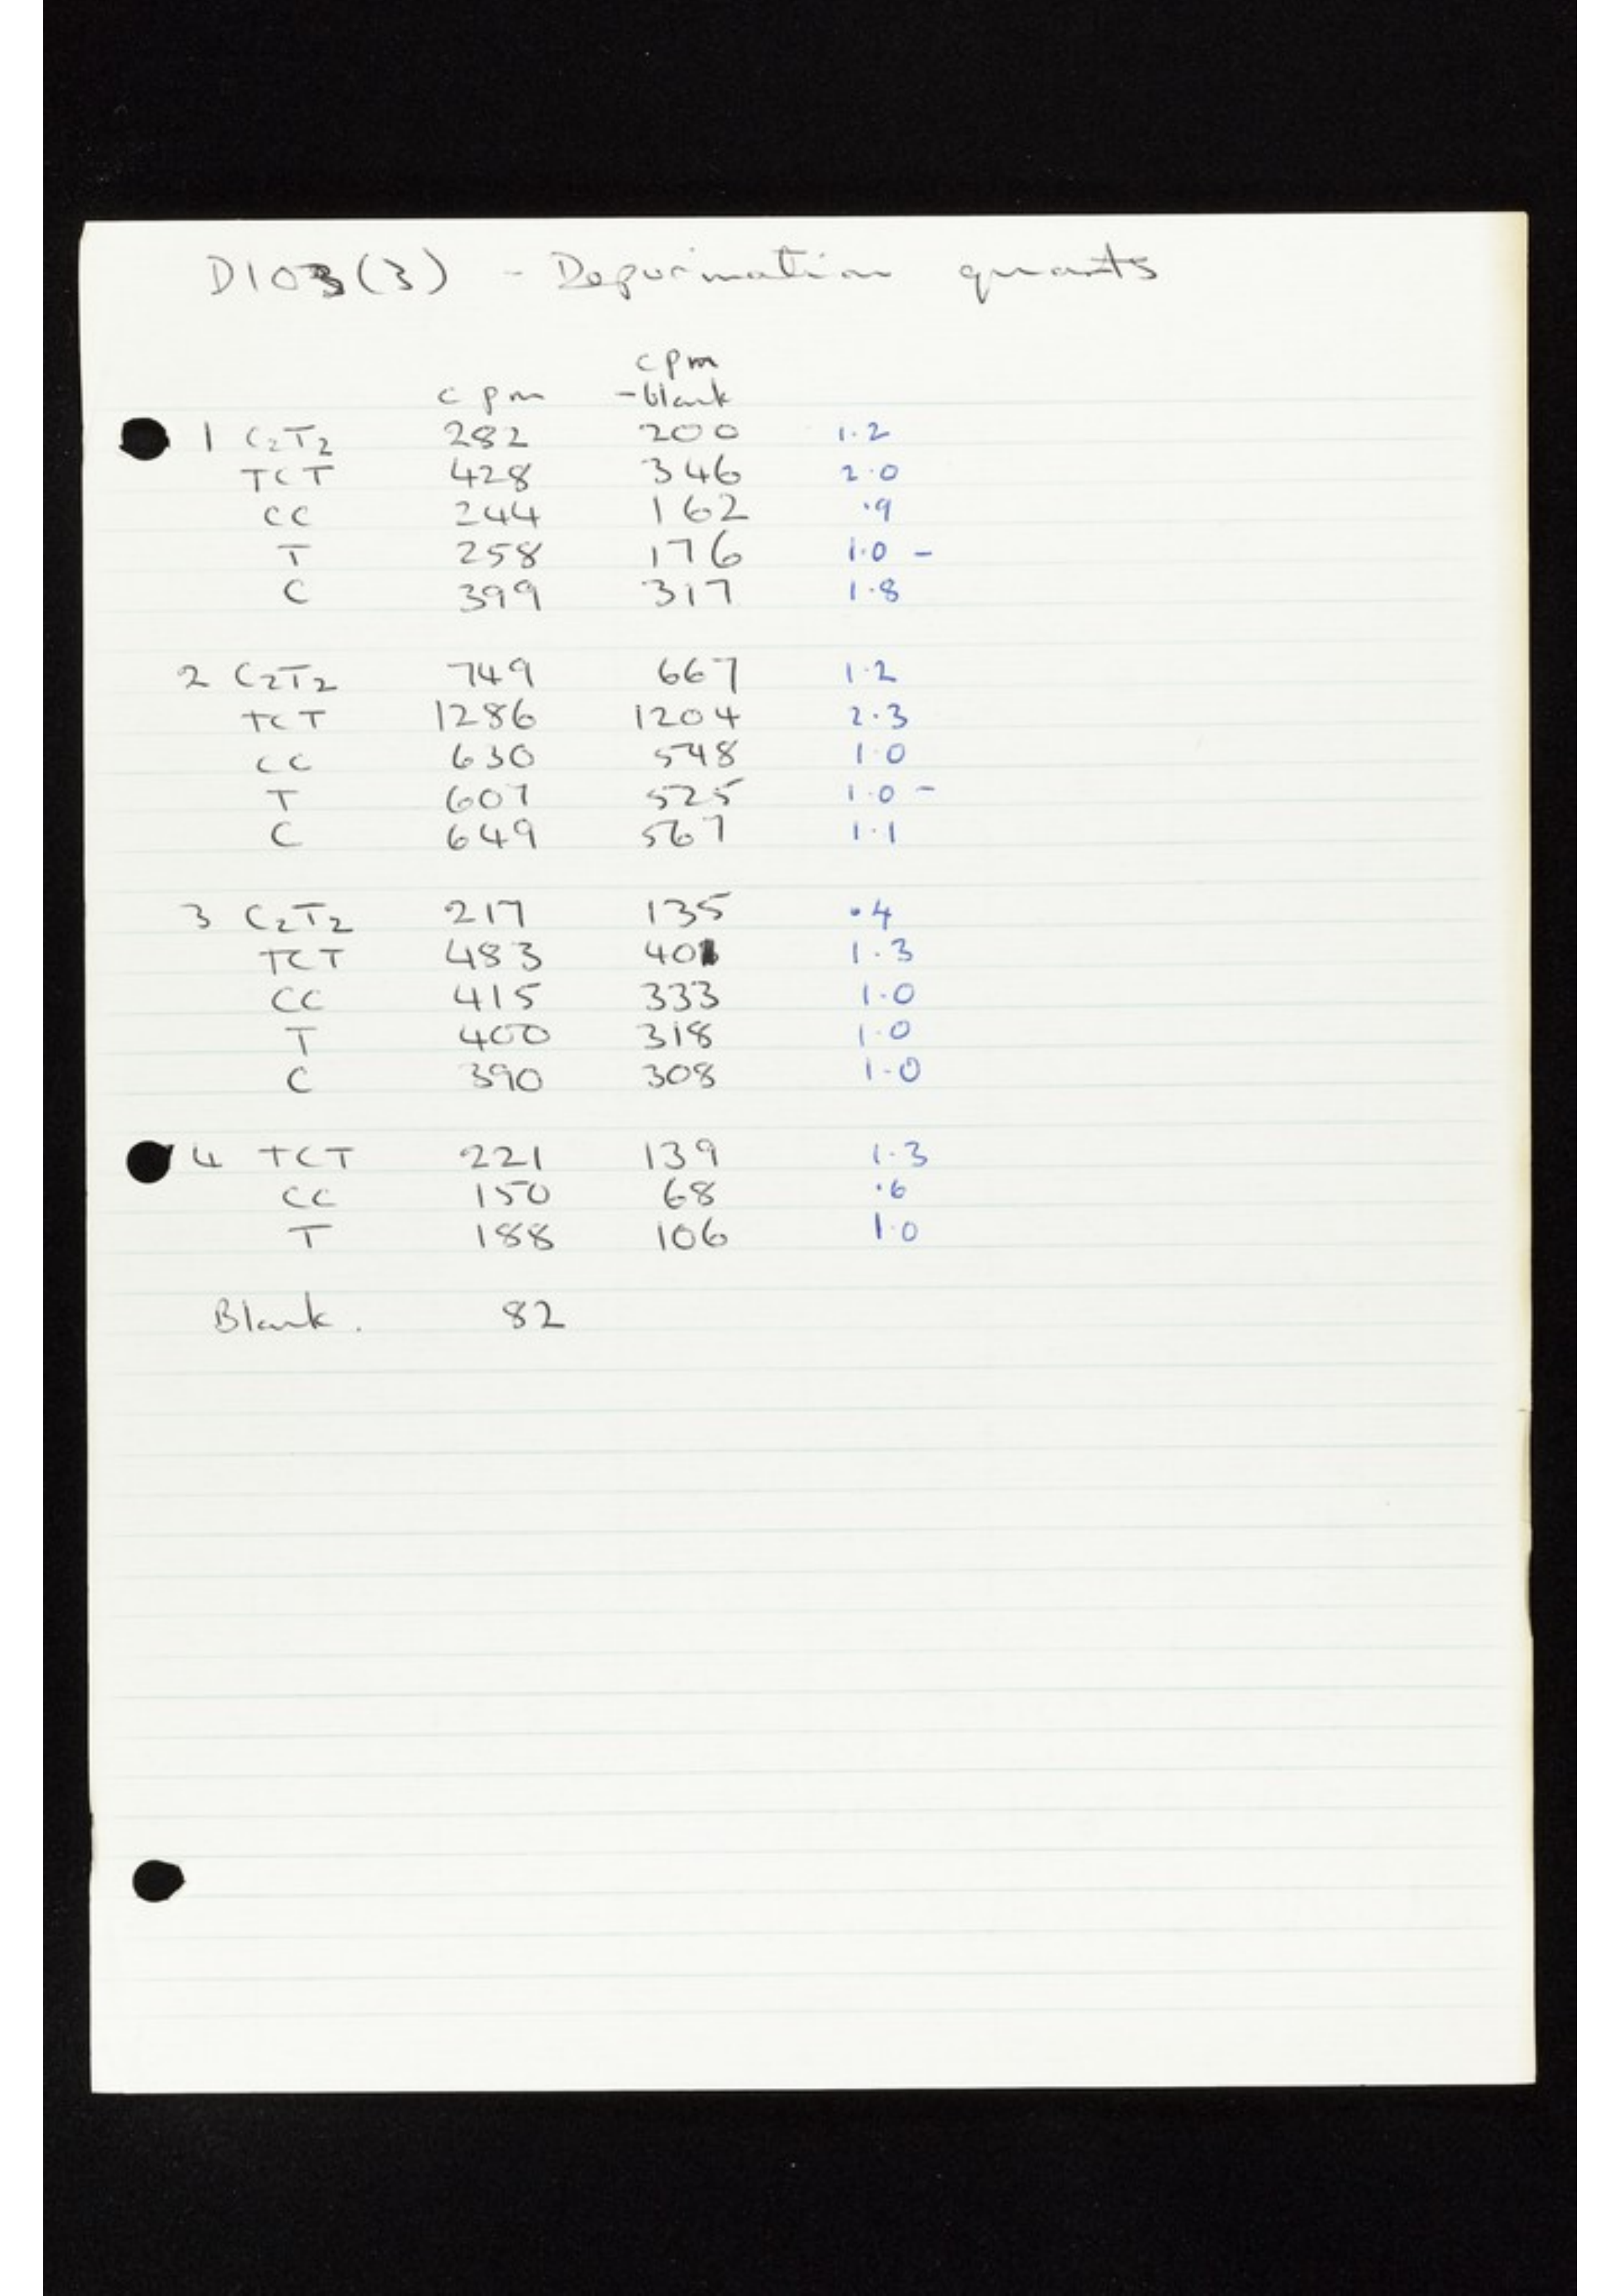 D103(3) - Depurination quants
cpm
cpm -blank
1 C₂T₂ 282 200 1.2
TCT 428 346 2.0
CC 244 162 .9
T 258 176 1.0 -
C 399 317 1.8
2 C₂T₂ 749 667 1.2
TCT 1286 1204 2.3
CC 630 548 1.0
T 607 525 1.0 -
C 649 567 1.1
3 C₂T₂ 217 135 .4
TCT 483 401 1.3
CC 415 333 1.0
T 400 318 1.0
C 390 308 1.0
4 TCT 221 139 1.3
CC 150 68 .6
T 188 106 1.0
Blank. 82